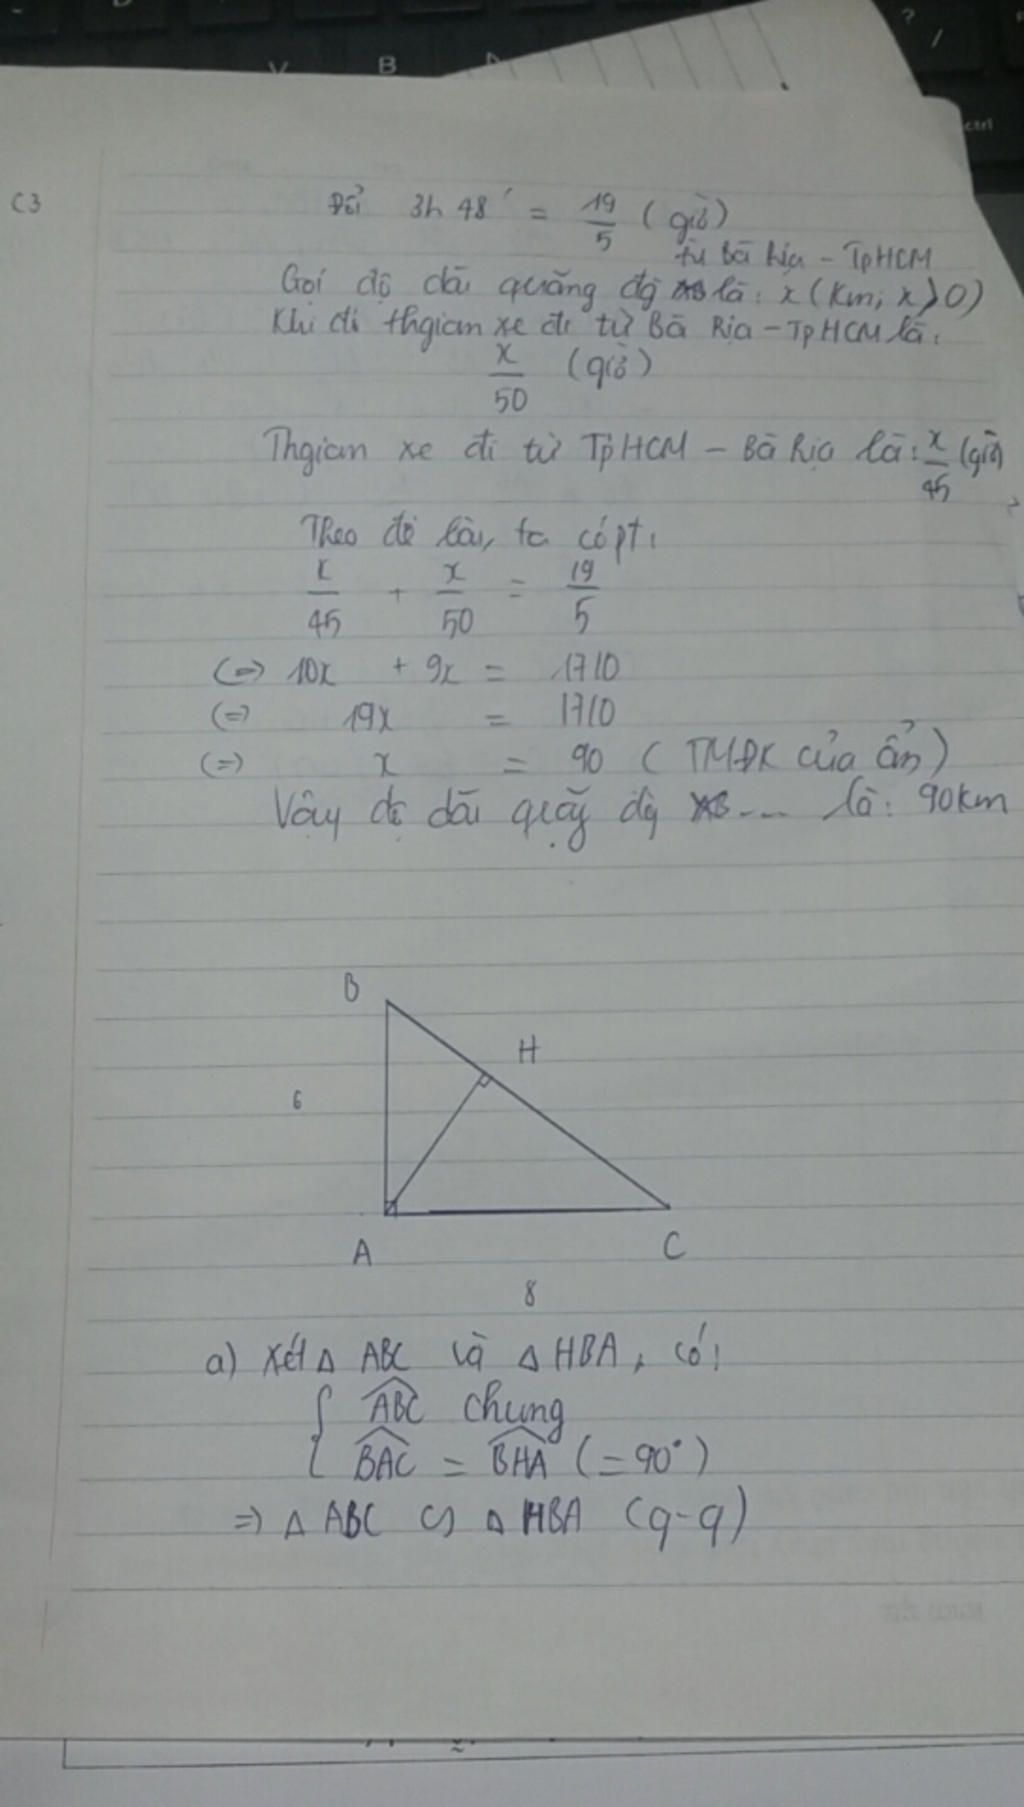 C3
Đổi 3h 48' = 19/5 (giờ)
từ Bà Rịa - TpHCM
Gọi độ dài quãng đg là: x (km; x > 0)
Khi đi thgian xe đi từ Bà Rịa - TpHCM là:
x/50 (giờ)
Thgian xe đi từ TpHCM - Bà Rịa là: x/45 (giờ)
Theo đề bài, ta có pt:
x/45 + x/50 = 19/5
(=) 10x + 9x = 1710
(=) 19x = 1710
(=) x = 90 (TMĐK của ẩn)
Vậy độ dài quãg đg ... là: 90km
B
H
6
A
C
8
a) Xét Δ ABC và Δ HBA, có:
{ ABC chung
BAC = BHA (= 90°)
=> Δ ABC ∽ Δ HBA (g-g)
V
B
?
/
ctrl